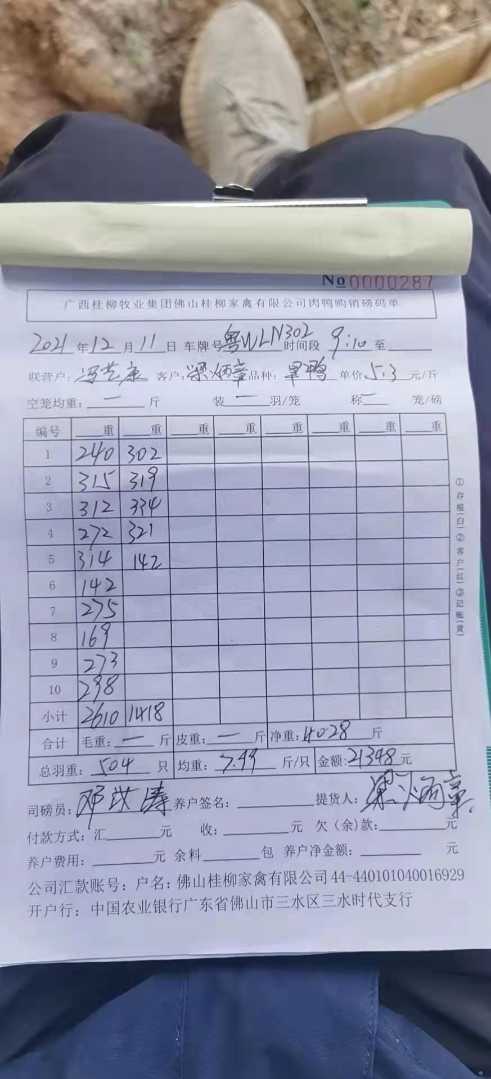 No 0000287
广西桂柳牧业集团佛山桂柳家禽有限公司肉鸭购销磅码单
2021 年 12 月 11 日 车牌号 粤WLN302 时间段 9:10 至
联营户: 客户: 梁炳章 品种: 单价 5.3 元/斤
空笼均重: 一 斤 装 一 羽/笼 称 一 笼/磅
编号 重 重 重 重 重 重 重 重
1 240 302
2 315 319
3 312 334
4 272 321
5 314 142
6 142
7 275
8 169
9 273
10 298
小计 2610 1418
合计 毛重: 一 斤 皮重: 一 斤 净重: 4028 斤
总羽重: 504 只 均重: 7.99 斤/只 金额: 21348 元
司磅员: 养户签名: 提货人: 梁炳章
付款方式: 汇 元 收: 元 欠(余)款: 元
养户费用: 元 余料 包 养户净金额: 元
公司汇款账号: 户名: 佛山桂柳家禽有限公司 44-440101040016929
开户行: 中国农业银行广东省佛山市三水区三水时代支行
①存根(白)②客户(红)③记账(黄)